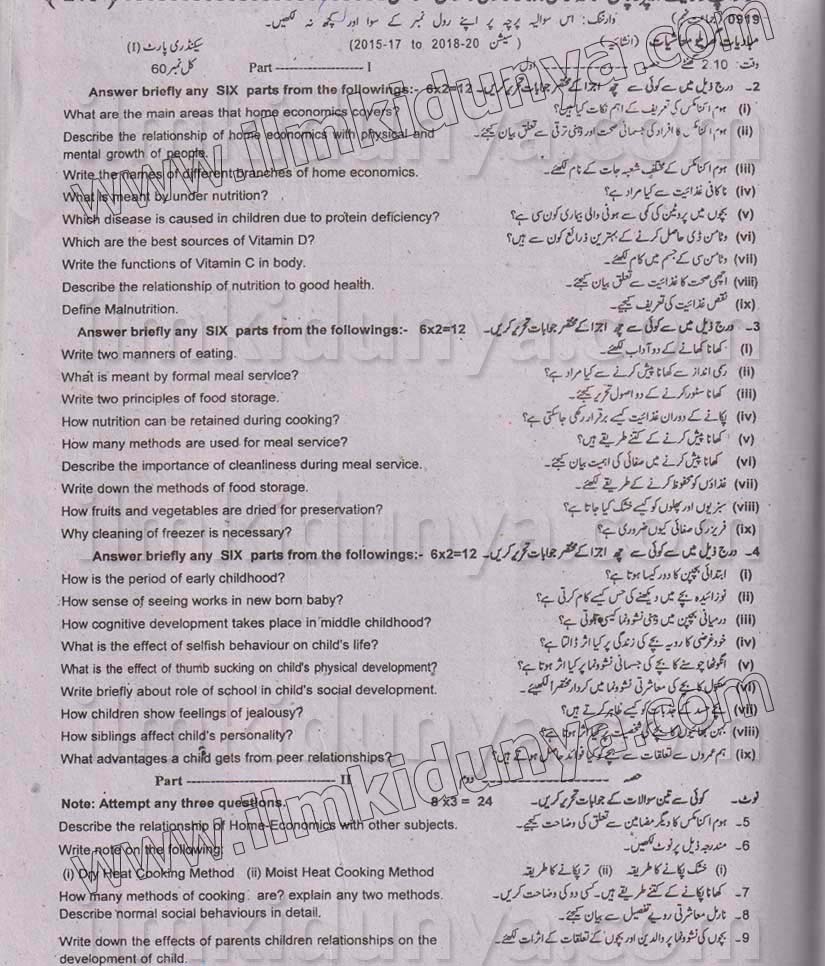 0919 (جماعت نہم) وارننگ: اس سوالیہ پرچہ پر اپنے رول نمبر کے سوا اور کچھ نہ لکھیں۔
(انشائیہ) (سیشن 2015-17 to 2018-20) سیکنڈری پارٹ (I)
وقت 2.10 گھنٹے حصہ اول Part ------------------ I کل نمبر 60
Answer briefly any SIX parts from the followings:- 6x2=12 2۔ درج ذیل میں سے کوئی سے چھ اجزا کے مختصر جوابات تحریر کریں۔
What are the main areas that home economics covers? (i) ہوم اکنامکس کی تعریف کے اہم نکات کیا ہیں؟
Describe the relationship of home economics with physical and (ii) ہوم اکنامکس کا افراد کی جسمانی صحت اور ذہنی ترقی سے تعلق بیان کیجئے۔
mental growth of people.
Write the names of different branches of home economics. (iii) ہوم اکنامکس کے مختلف شعبہ جات کے نام لکھئے۔
What is meant by under nutrition? (iv) ناکافی غذائیت سے کیا مراد ہے؟
Which disease is caused in children due to protein deficiency? (v) بچوں میں پروٹین کی کمی سے ہونی والی بیماری کون سی ہے؟
Which are the best sources of Vitamin D? (vi) وٹامن ڈی حاصل کرنے کے بہترین ذرائع کون سے ہیں؟
Write the functions of Vitamin C in body. (vii) وٹامن سی کے جسم میں کام لکھئے۔
Describe the relationship of nutrition to good health. (viii) اچھی صحت کا غذائیت سے تعلق بیان کیجئے۔
Define Malnutrition. (ix) نقص غذائیت کی تعریف کیجیے۔
Answer briefly any SIX parts from the followings:- 6x2=12 3۔ درج ذیل میں سے کوئی سے چھ اجزا کے مختصر جوابات تحریر کریں۔
Write two manners of eating. (i) کھانا کھانے کے دو آداب لکھئے۔
What is meant by formal meal service? (ii) رسمی انداز سے کھانا پیش کرنے سے کیا مراد ہے؟
Write two principles of food storage. (iii) کھانا سٹور کرنے کے دو اصول تحریر کیجئے۔
How nutrition can be retained during cooking? (iv) پکانے کے دوران غذائیت کیسے برقرار رکھی جاسکتی ہے؟
How many methods are used for meal service? (v) کھانا پیش کرنے کے کتنے طریقے ہیں؟
Describe the importance of cleanliness during meal service. (vi) کھانا پیش کرنے میں صفائی کی اہمیت بیان کیجئے۔
Write down the methods of food storage. (vii) غذاؤں کو محفوظ کرنے کے طریقے لکھئے۔
How fruits and vegetables are dried for preservation? (viii) سبزیوں اور پھلوں کو کیسے خشک کیا جاتا ہے؟
Why cleaning of freezer is necessary? (ix) فریزر کی صفائی کیوں ضروری ہے؟
Answer briefly any SIX parts from the followings:- 6x2=12 4۔ درج ذیل میں سے کوئی سے چھ اجزا کے مختصر جوابات تحریر کریں۔
How is the period of early childhood? (i) ابتدائی بچپن کا دور کیسا ہوتا ہے؟
How sense of seeing works in new born baby? (ii) نوزائیدہ بچے میں دیکھنے کی حس کیسے کام کرتی ہے؟
How cognitive development takes place in middle childhood? (iii) درمیانی بچپن میں ذہنی نشوونما کیسی ہوتی ہے؟
What is the effect of selfish behaviour on child's life? (iv) خود غرضی کا رویہ بچے کی زندگی پر کیا اثر ڈالتا ہے؟
What is the effect of thumb sucking on child's physical development? (v) انگوٹھا چوسنے کا بچے کی جسمانی نشوونما پر کیا اثر ہوتا ہے؟
Write briefly about role of school in child's social development. (vi) سکول کا بچے کی معاشرتی نشوونما میں کردار مختصرا لکھیئے۔
How children show feelings of jealousy? (vii) بچے حسد کے جذبات کو کیسے ظاہر کرتے ہیں؟
How siblings affect child's personality? (viii) بہن بھائیوں کا بچے کی شخصیت پر کیا اثر ہوتا ہے؟
What advantages a child gets from peer relationships? (ix) ہم عمروں سے تعلقات سے بچے کو کیا فوائد حاصل ہوتے ہیں؟
Part ------------------ II حصہ ------------------ دوم
Note: Attempt any three questions. 8 x3 = 24 نوٹ۔ کوئی سے تین سوالات کے جوابات تحریر کریں۔
Describe the relationship of Home-Economics with other subjects. 5۔ ہوم اکنامکس کا دیگر مضامین سے تعلق کی وضاحت کیجیے۔
Write note on the following: 6۔ مندرجہ ذیل پر نوٹ لکھیں۔
(i) Dry Heat Cooking Method (ii) Moist Heat Cooking Method (i) خشک پکانے کا طریقہ (ii) تر پکانے کا طریقہ
How many methods of cooking are? explain any two methods. 7۔ کھانا پکانے کے کتنے طریقے ہیں۔ کسی دو کی وضاحت کریں۔
Describe normal social behaviours in detail. 8۔ نارمل معاشرتی رویے تفصیل سے بیان کیجئے۔
Write down the effects of parents children relationships on the 9۔ بچوں کی نشوونما پر والدین اور بچوں کے تعلقات کے اثرات لکھئے۔
development of child.
www.ilmkidunya.com
www.ilmkidunya.com
ilmkidunya.com
ilmkidunya.com
ilmkidunya.com